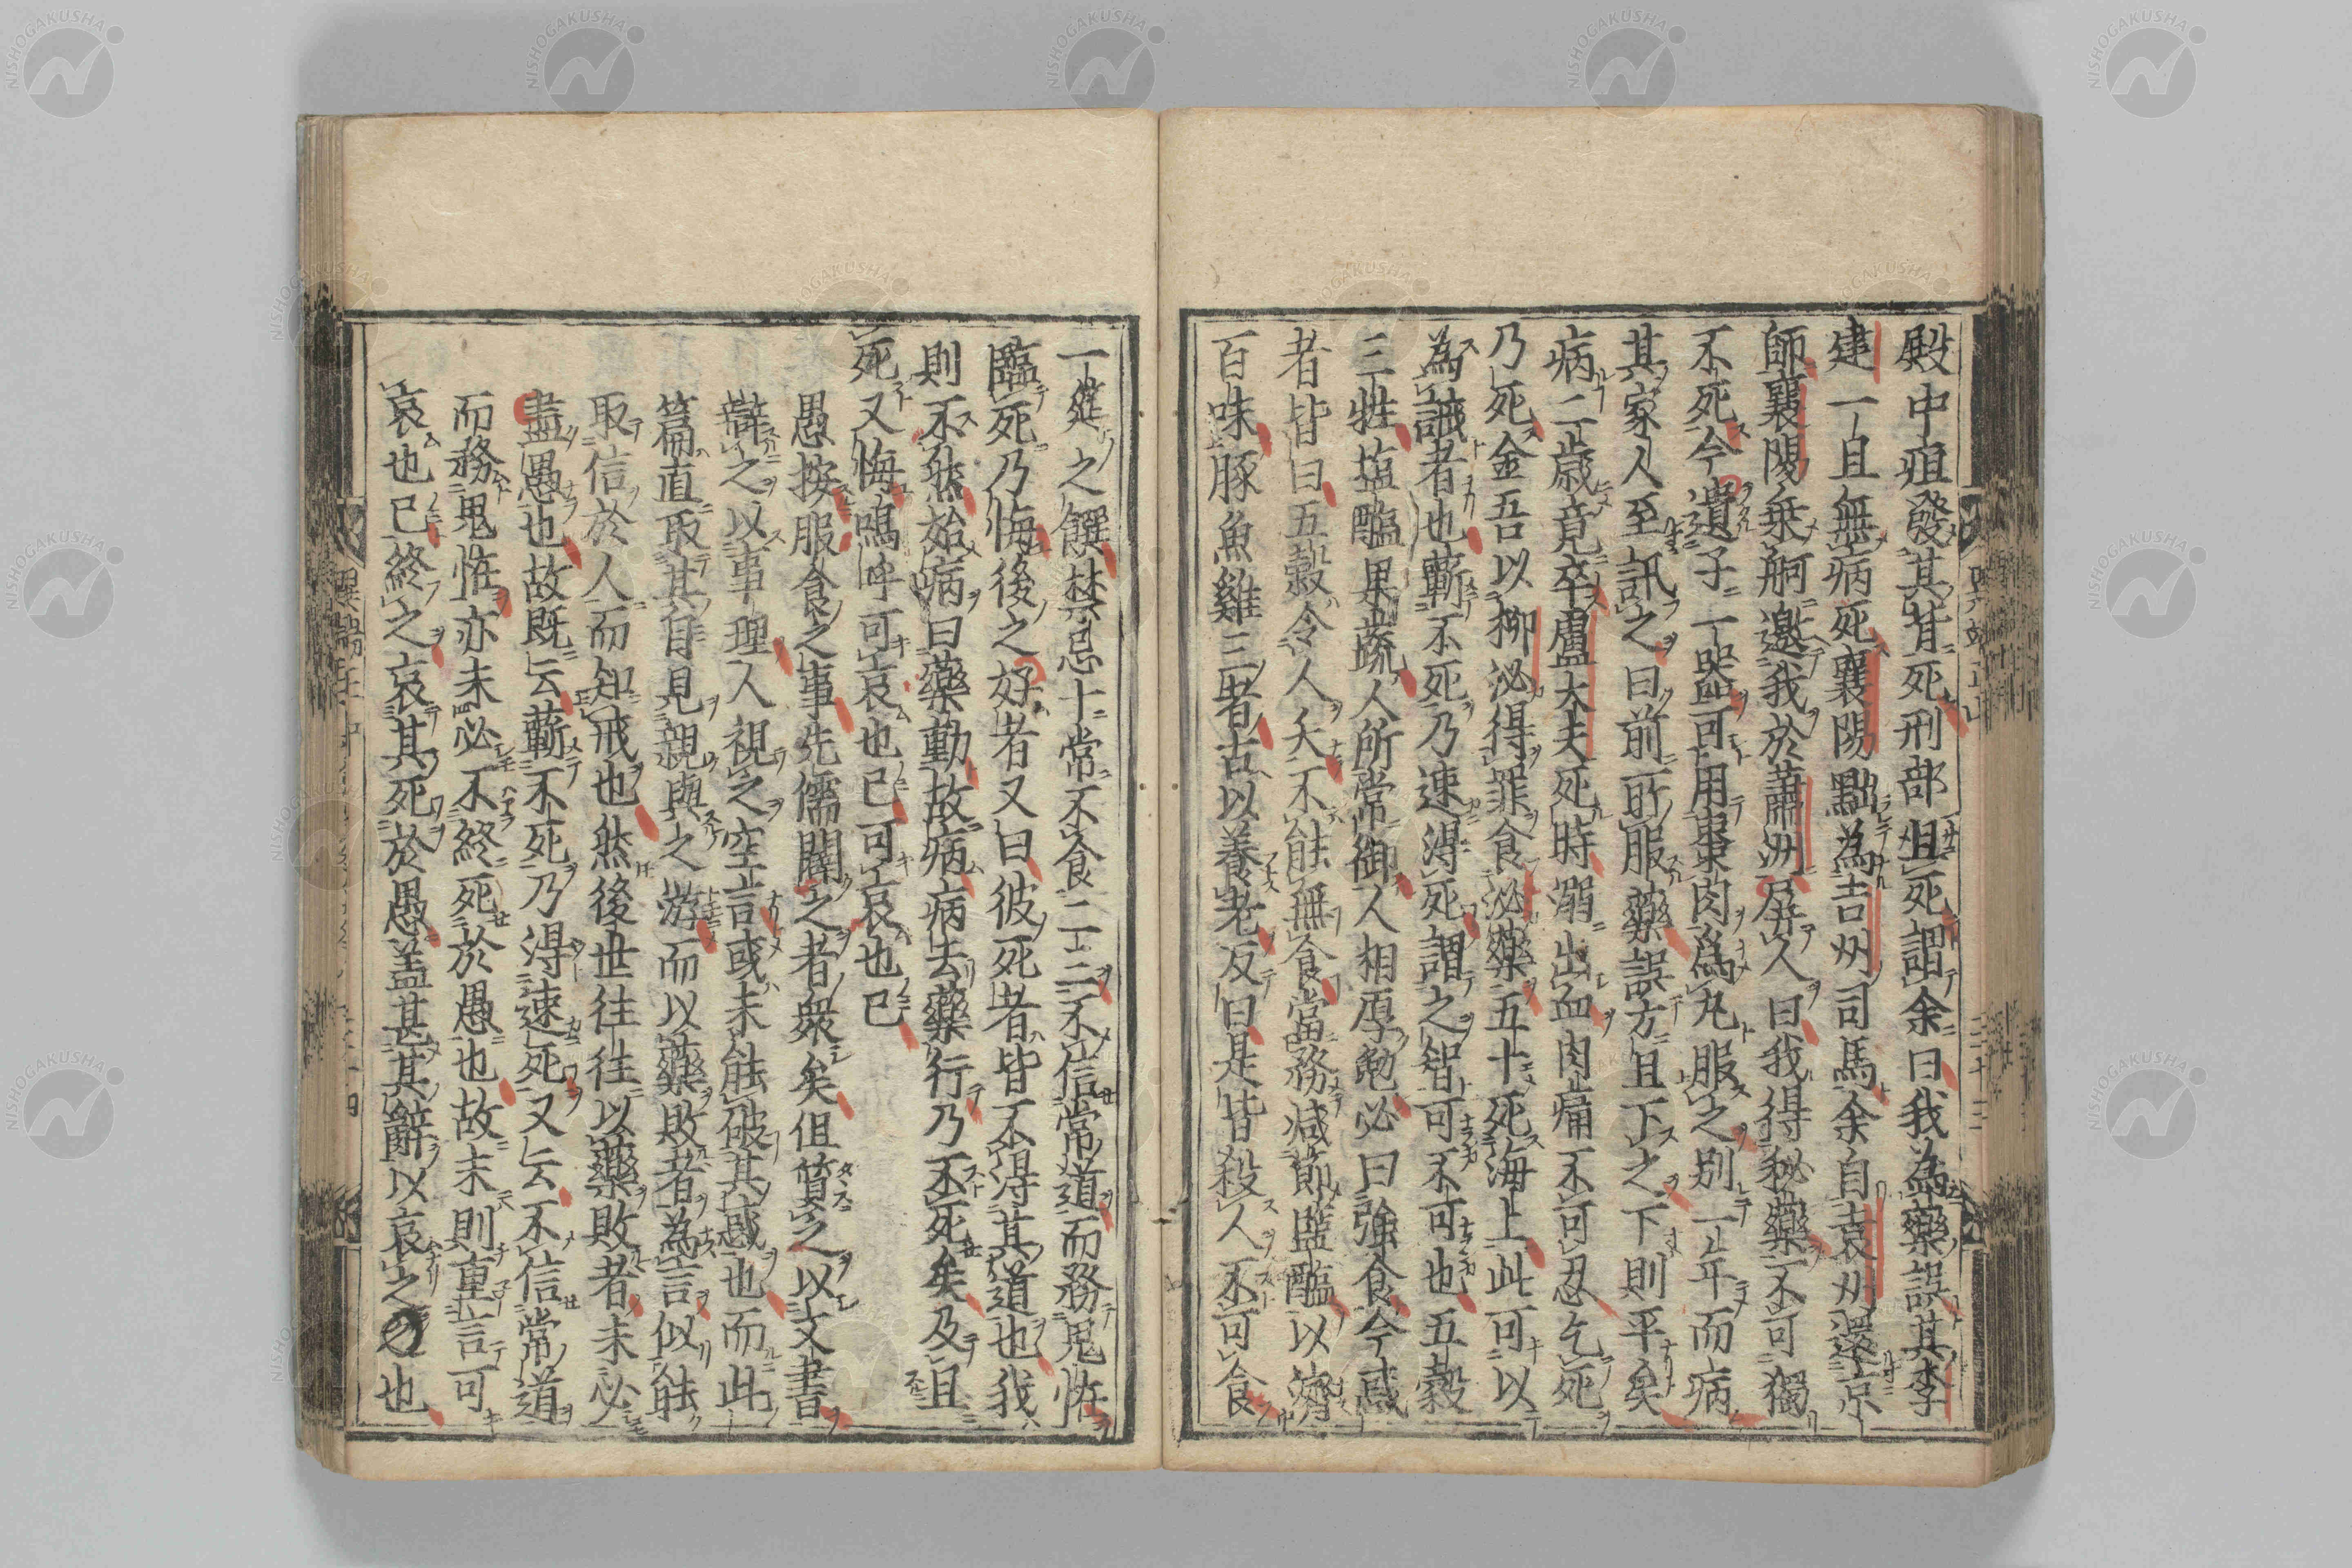 殿中疽發其背死刑部且死謂余曰我為藥誤其李
建一旦無病死襄陽黜為吉州司馬余自袁州還京
師襄陽乗舸邀我於蕭洲屏人曰我得秘藥不可獨
不死今遺子一噐可用棗肉為丸服之別一年而病
其家人至訊之曰前所服藥誤方且下之下則平矣
病二歳竟卒盧大夫死時溺出血肉痛不可忍乞死
乃死金吾以柳泌得罪食泌藥五十死海上此可以
為誡者也蘄不死乃速得死謂之智可不可也五穀
三牲塩醢果蔬人所常御人相厚勉必曰強食今惑
者皆曰五穀令人夭不能無食當務减節塩醢以濟
百味豚魚雞三者古以養老反曰是皆殺人不可食
一筵之饌禁忌十常不食二三不信常道而務鬼怪
臨死乃悔後之好者又曰彼死者皆不得其道也我
則不然始病曰藥動故病病去藥行乃不死矣及且
死又悔嗚呼可哀也已可哀也已
愚按服食之事先儒闢之者衆矣但質之以文書
辯之以事理人視之空言或未能破其惑也而此
篇直取其自見親與之游而以藥敗者為言似能
取信於人而知戒也然後世往往以藥敗者未必
盡愚也故既云蘄不死乃得速死又云不信常道
而務鬼怪亦未必不終死於愚也故未則重言可
哀也已終之哀其死於愚盖甚其辭以哀之也